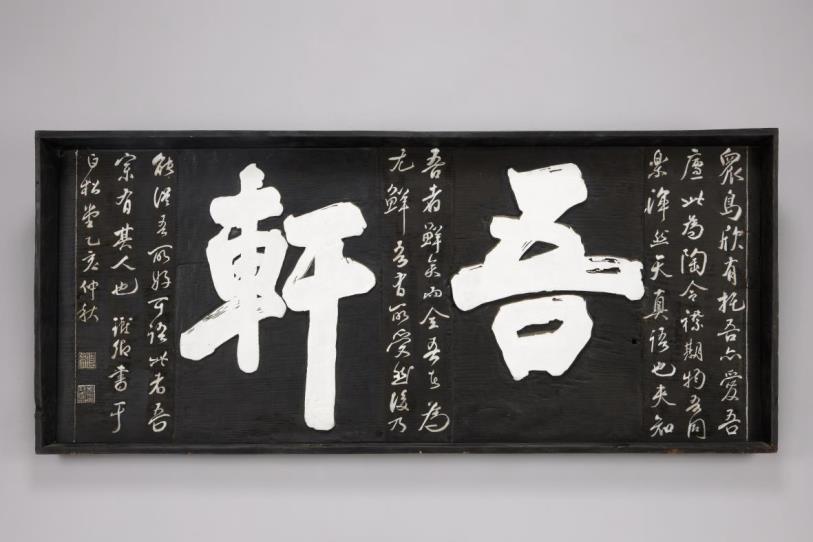 衆鳥欣有托吾亦愛吾
廬此為陶令襟期物吾同
楽渾然天真語也夫知
吾
吾者鮮矣而全吾為
尤鮮吾所愛然後乃
軒
能從吾所好可語此者吾
宗有其人也 書于
白松堂乙亥仲秋